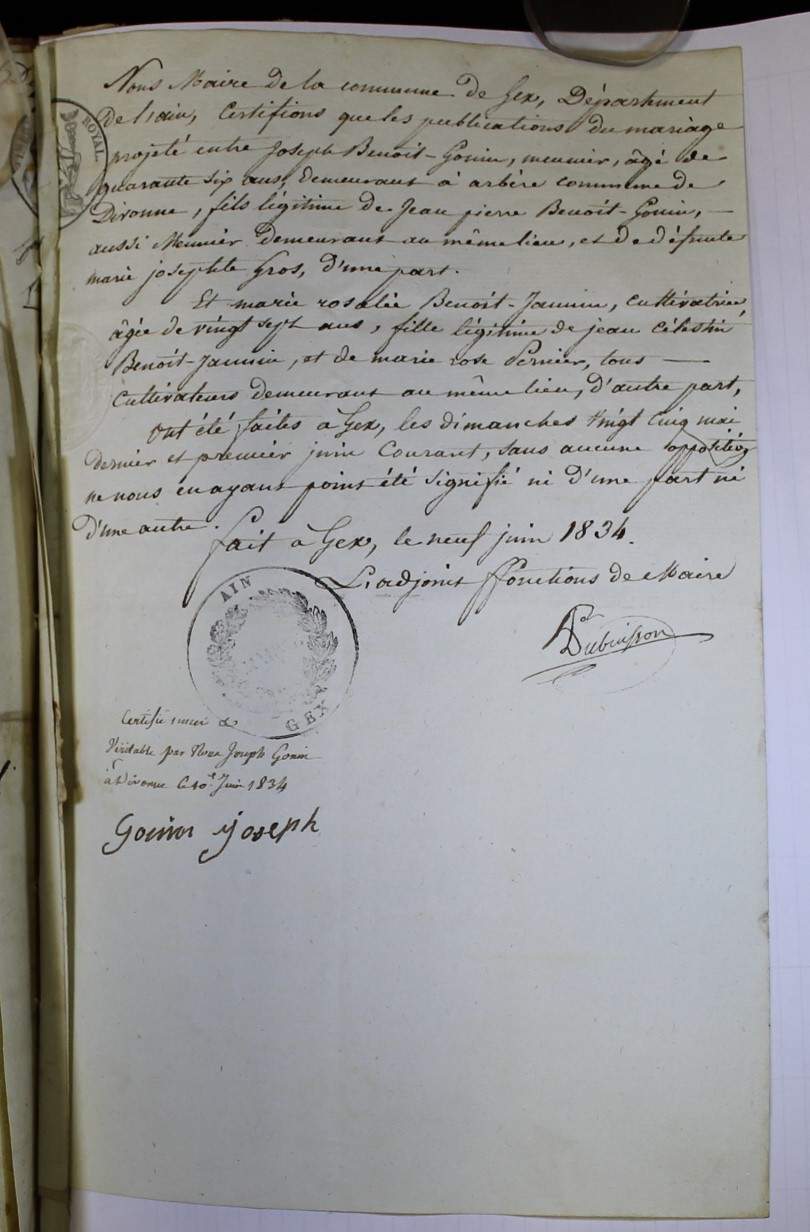 Nous Maire de la commune de Gex, Département
de l'ain, Certifions que les publications du mariage
projeté entre Joseph Benoit-Gonin, meunier, âgé de
quarante six ans, demeurant à arbère commune de
Divonne, fils légitime de Jean pierre Benoit-Gonin, —
aussi Meunier demeurant au même lieu, et de défunte
marie josephte Gros, d'une part.
Et marie rosalie Benoit-Jannin, cultivatrice,
âgée de vingt sept ans, fille légitime de jean Célestin
Benoit-Jannin, et de marie rose Pernier, tous —
cultivateurs demeurant au même lieu, d'autre part,
Ont été faites à Gex, les dimanches vingt cinq mai
dernier et premier juin Courant, sans aucune opposition,
ne nous en ayant point été signifié ni d'une part ni
d'une autre.
fait à Gex, le neuf juin 1834.
L'adjoint ffonctions de Maire
Dubuisson
ROYAL.
AIN
GEX
Certifié sincère &
Véritable par Nous Joseph Gonin
à Divonne le 10 Juin 1834
Gonin joseph